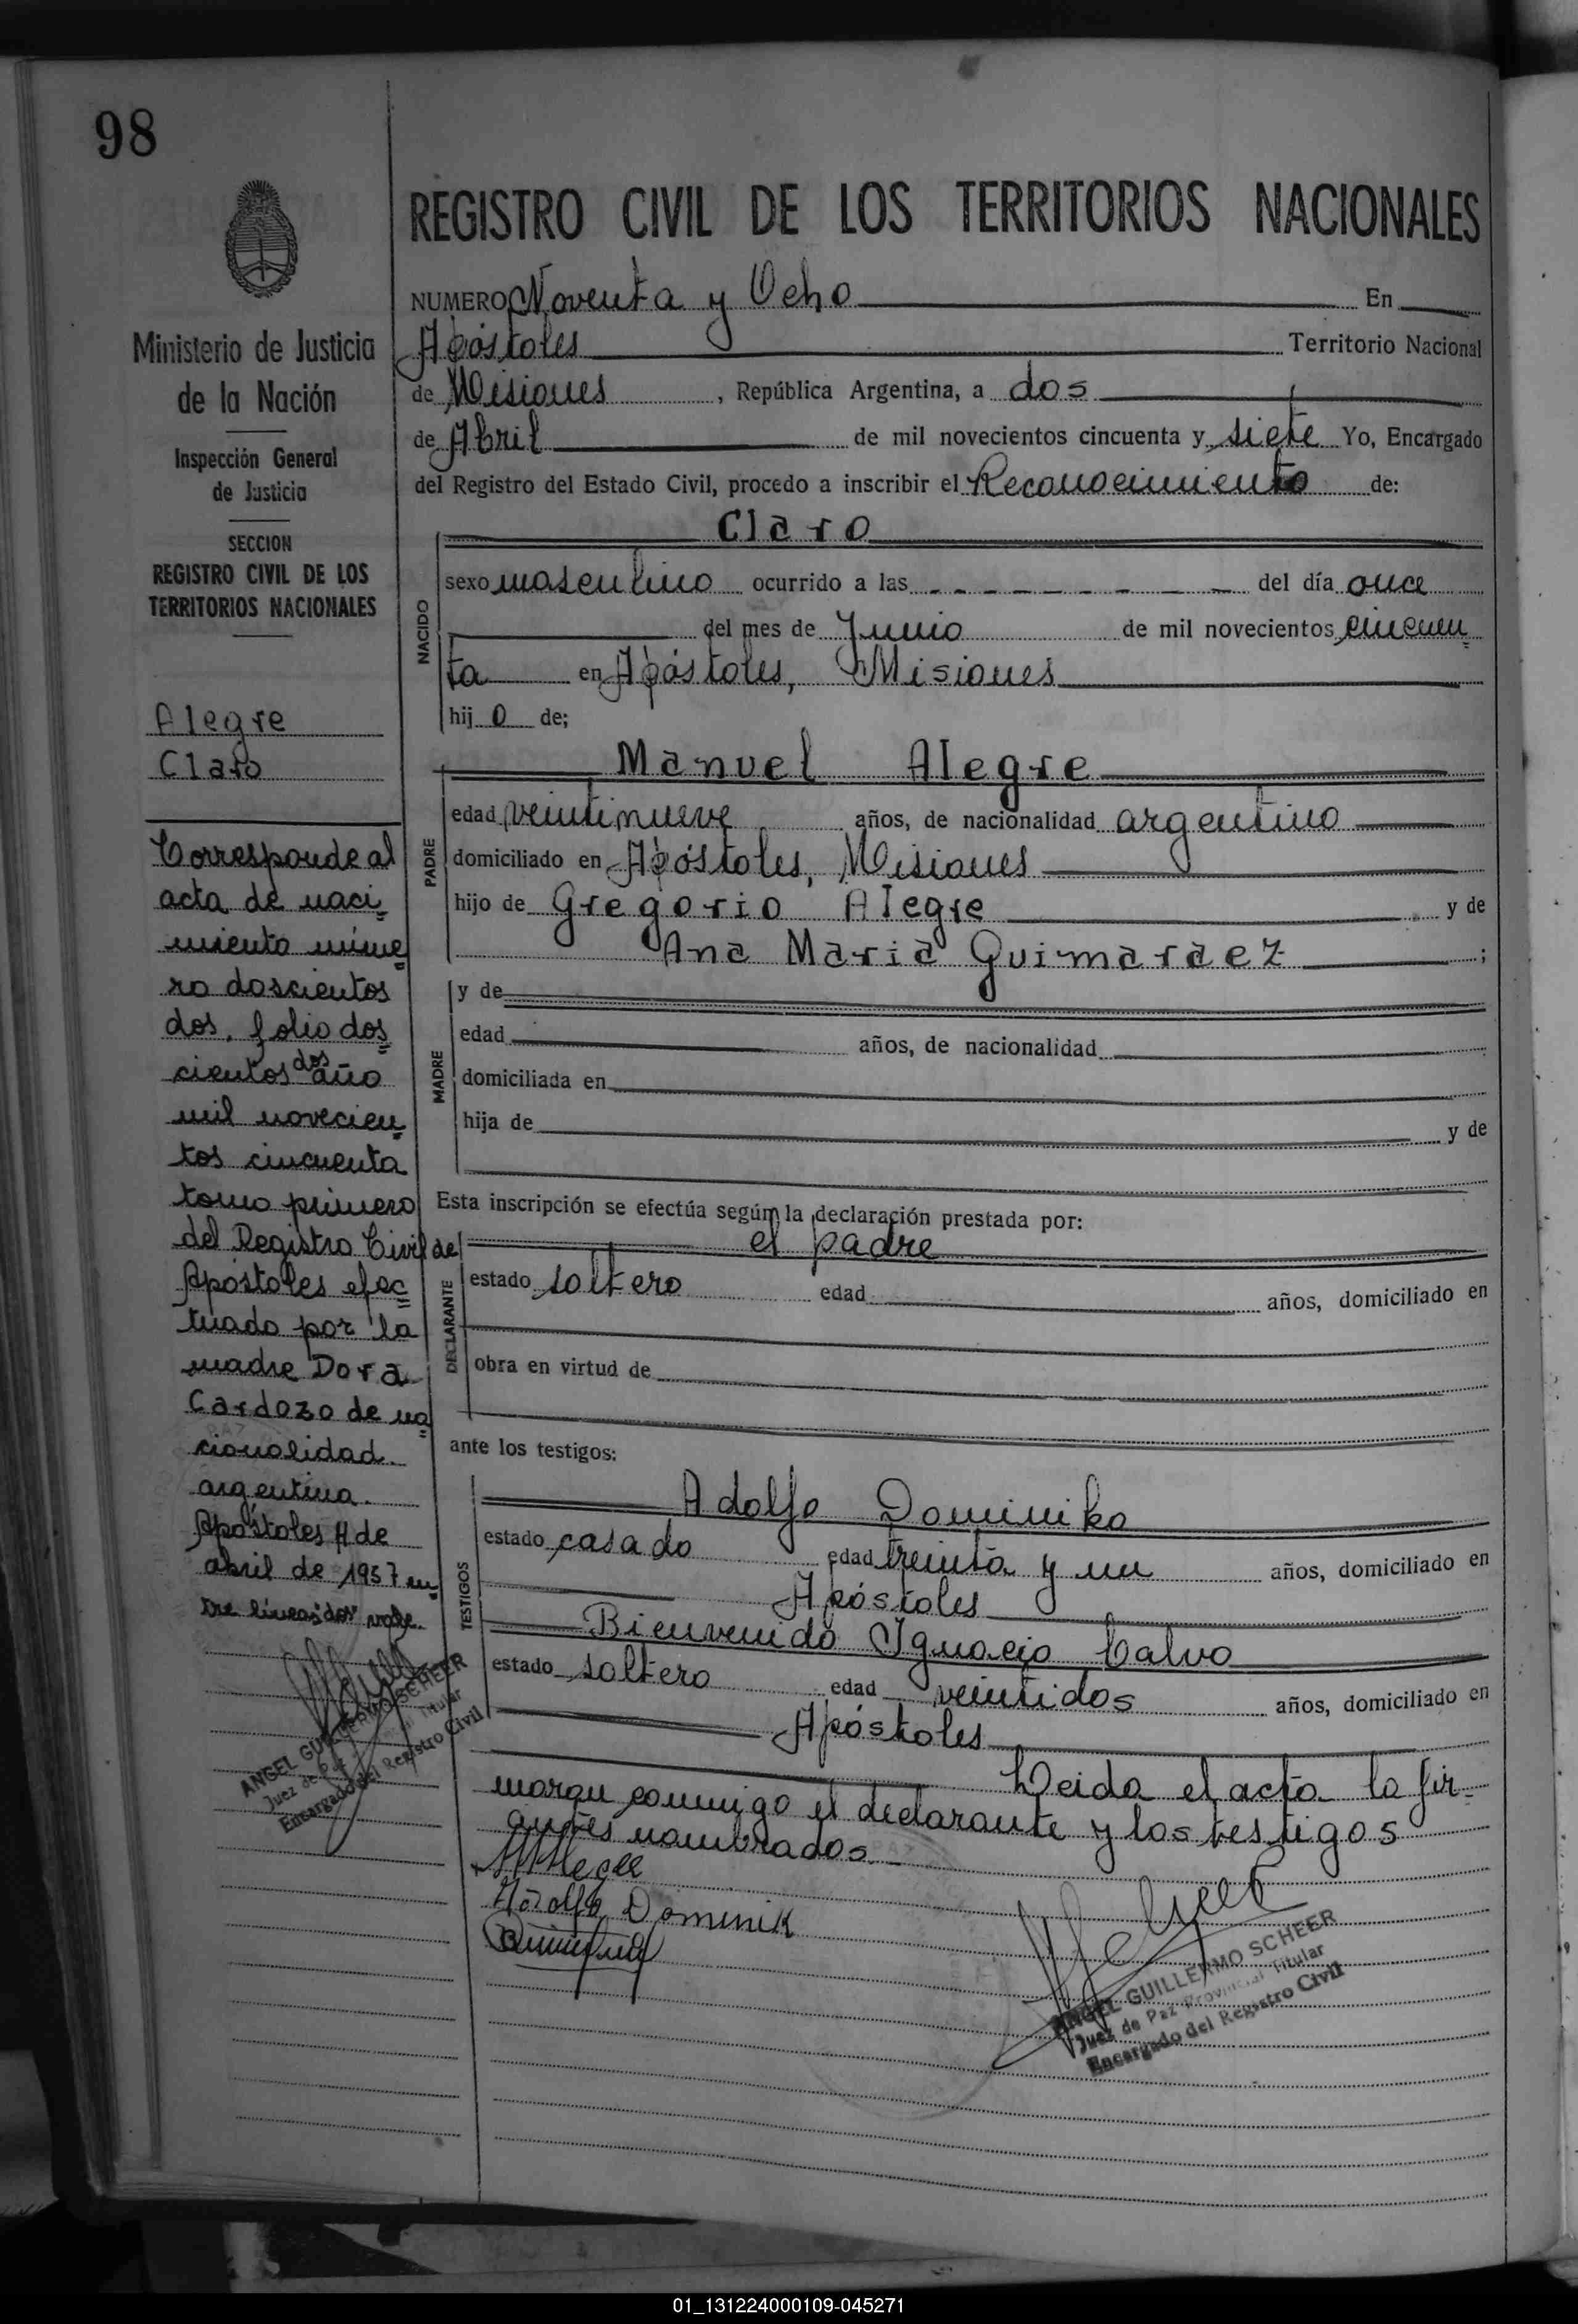 98
REGISTRO CIVIL DE LOS TERRITORIOS NACIONALES
Ministerio de Justicia
de la Nación
Inspección General
de Justicia
SECCION
REGISTRO CIVIL DE LOS
TERRITORIOS NACIONALES
Alegre
Claro
Corresponde al
acta de naci
miento núme
ro doscientos
dos, folio dos
cientos dos año
mil novecien
tos cincuenta
tomo primero
del Registro Civil de
Apóstoles efec
tuado por la
madre Dora
Cardozo de na
cionalidad
argentina.
Apóstoles A de
abril de 1957 en
tre lineas "dos" vale.
ANGEL GUILLERMO SCHEER
Juez de Paz Titular
Encargado del Registro Civil
NUMERO Noventa y Ocho En
Apóstoles Territorio Nacional
de Misiones, República Argentina, a dos
de Abril de mil novecientos cincuenta y siete Yo, Encargado
del Registro del Estado Civil, procedo a inscribir el Reconocimiento de:
NACIDO
Claro
sexo masculino ocurrido a las _ _ _ _ _ _ _ _ _ del día once
del mes de Junio de mil novecientos cincuen
ta en Apóstoles, Misiones
hij o de;
PADRE
Manuel Alegre
edad veintinueve años, de nacionalidad argentino
domiciliado en Apóstoles, Misiones
hijo de Gregorio Alegre y de
Ana Maria Guimaraez ;
MADRE
y de
edad años, de nacionalidad
domiciliada en
hija de y de
Esta inscripción se efectúa según la declaración prestada por:
DECLARANTE
el padre
estado soltero edad años, domiciliado en
obra en virtud de
ante los testigos:
TESTIGOS
Adolfo Dominiko
estado casado edad treinta y un años, domiciliado en
Apóstoles
Bienvenido Ignacio Calvo
estado soltero edad veintidos años, domiciliado en
Apóstoles
Leida el acta la fir-
maran conmigo el declarante y los testigos
antes nombrados.
Adolfo Dominik
ANGEL GUILLERMO SCHEER
Juez de Paz Provincial Titular
Encargado del Registro Civil
01_131224000109-045271